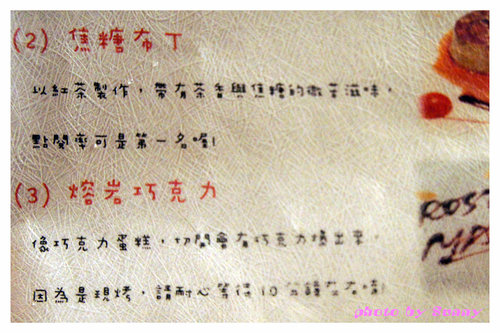 (2) 焦糖布丁
以紅茶製作，帶有茶香與焦糖的微苦滋味，
點閱率可是第一名喔!
(3) 熔岩巧克力
像巧克力蛋糕，切開會有巧克力漿出來，
因為是現烤，請耐心等待10分鐘左右唷!
photo by Ronny